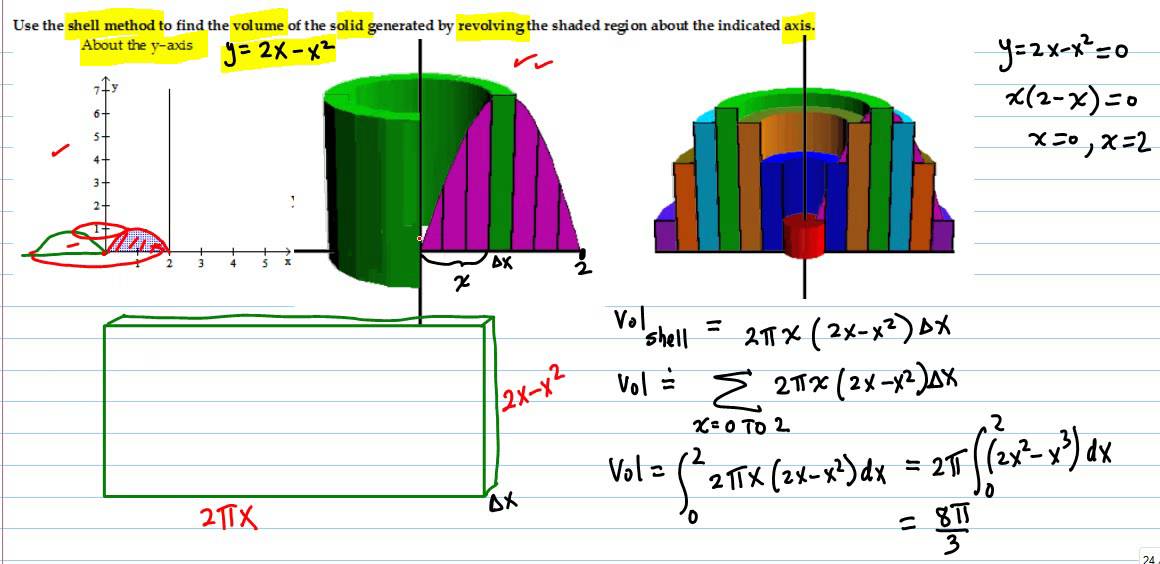 Use the shell method to find the volume of the solid generated by revolving the shaded region about the indicated axis.
About the y-axis
y = 2x - x²
y = 2x - x² = 0
x(2 - x) = 0
x = 0, x = 2
7 y
6
5
4
3
2
1
1 2 3 4 5 x
x Δx 2
2x - x²
Δx
2πx
Vol shell = 2πx (2x - x²) Δx
Vol ≐ Σ 2πx (2x - x²) Δx
x = 0 TO 2
Vol = ∫₀² 2πx (2x - x²) dx = 2π ∫₀² (2x² - x³) dx
= 8π/3
24